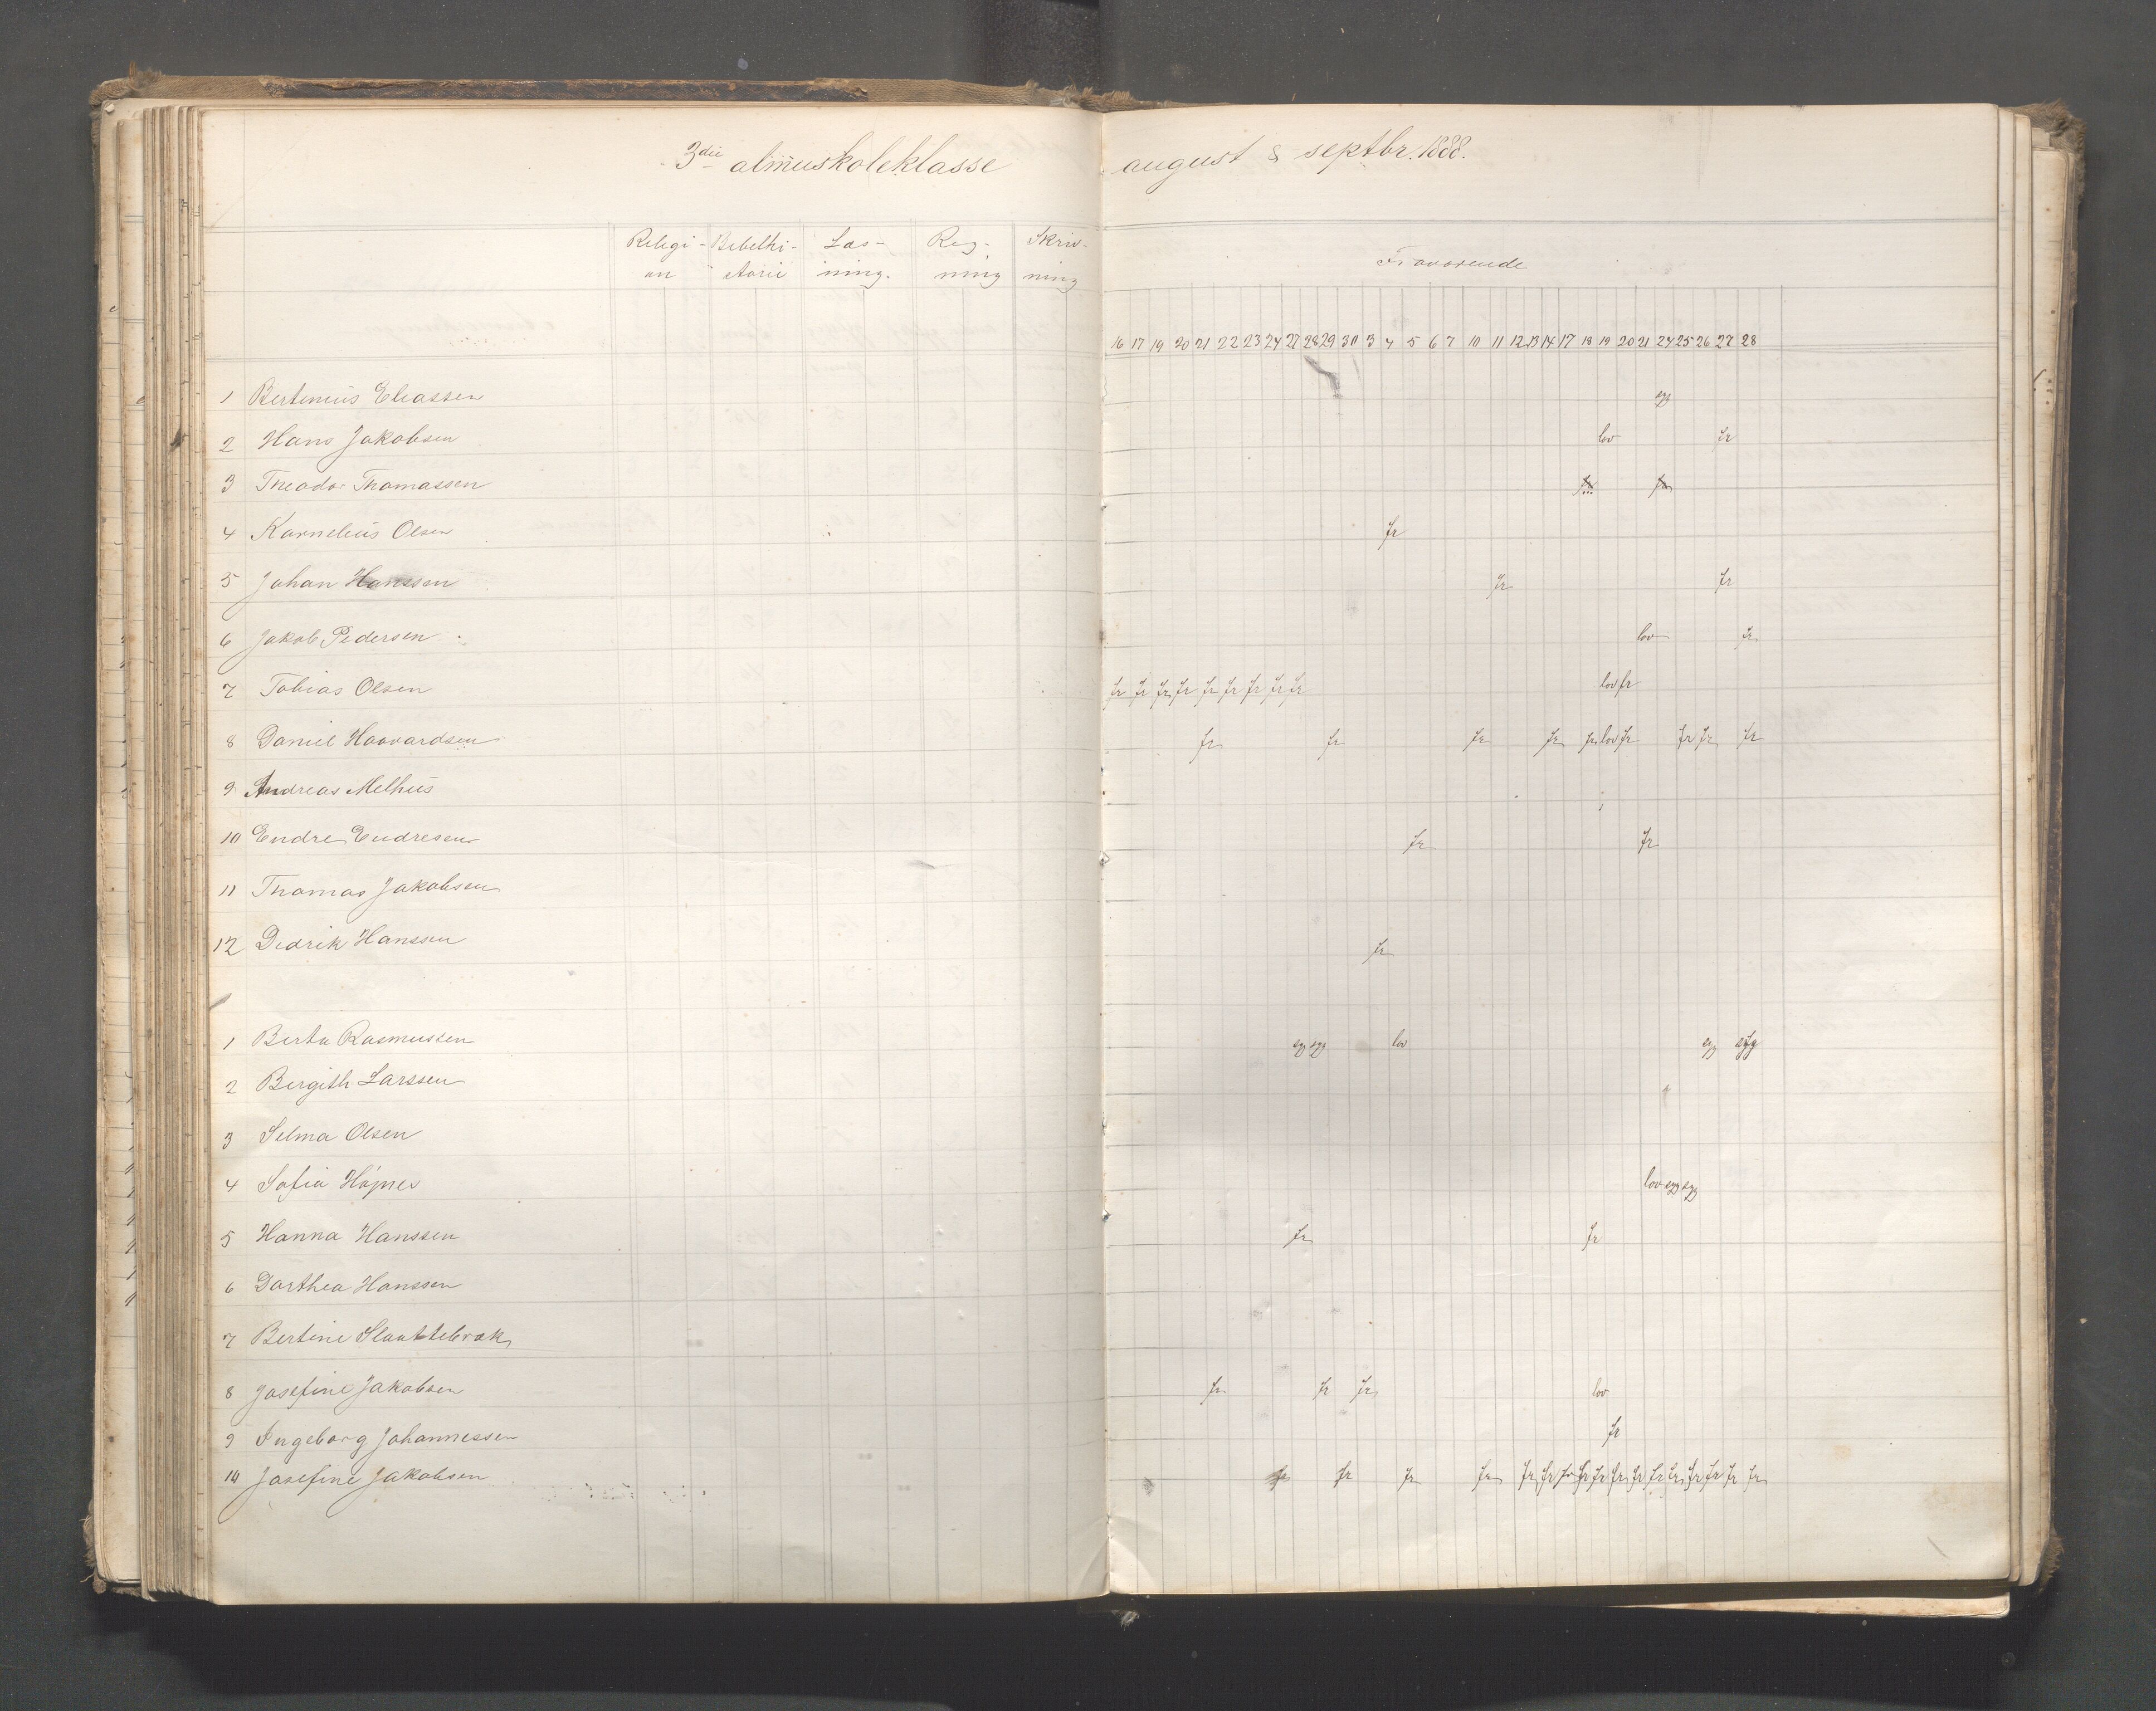 3die almuskoleklasse august & septbr. 1888.
Religi- Bibelhi- Læs- Reg- Skriv-
on storie ning. ning ning
Fraværende
16 17 19 20 21 22 23 24 27 28 29 30 3 4 5 6 7 10 11 12 13 14 17 18 19 20 21 24 25 26 27 28
1 Bertinius Eliassen syg
2 Hans Jakobsen lov fr
3 Theodor Thomassen
4 Kornelius Olsen fr
5 Johan Hanssen fr fr
6 Jakob Pedersen lov fr
7 Tobias Olsen fr fr fr fr fr fr fr fr fr lov fr
8 Daniel Haavardsen fr fr fr fr fr lov fr fr fr fr
9 Andreas Melhus
10 Endre Endresen fr fr
11 Thomas Jakobsen
12 Didrik Hanssen fr
1 Berta Rasmussen syg syg lov syg syg
2 Bergith Larssen
3 Selma Olsen
4 Sofia Höjnes lov syg syg
5 Hanna Hanssen fr fr
6 Dorthea Hanssen
7 Bertine Slaattebræk
8 Josefine Jakobsen fr fr fr lov
9 Ingeborg Johannessen fr
10 Josefine Jakobsen fr fr fr fr fr fr fr fr fr fr fr fr fr fr fr fr fr